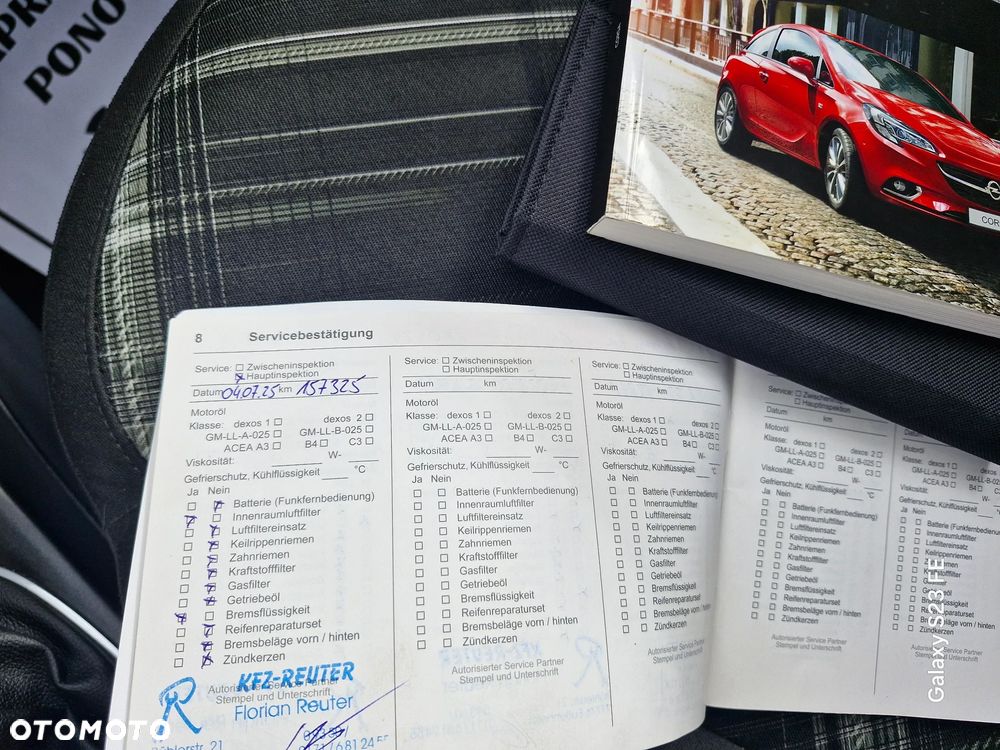 PONO
8 Servicebestätigung
Service: Zwischeninspektion
Hauptinspektion
Datum 04.07.25 km 157325
Motoröl
Klasse: dexos 1 dexos 2
GM-LL-A-025 GM-LL-B-025
ACEA A3 B4 C3
Viskosität: W-
Gefrierschutz, Kühlflüssigkeit °C
Ja Nein
Batterie (Funkfernbedienung)
Innenraumluftfilter
Luftfiltereinsatz
Keilrippenriemen
Zahnriemen
Kraftstofffilter
Gasfilter
Getriebeöl
Bremsflüssigkeit
Reifenreparaturset
Bremsbeläge vorn / hinten
Zündkerzen
Autorisierter Service Partner
Stempel und Unterschrift
KFZ-REUTER
Florian Reuter
Service: Zwischeninspektion
Hauptinspektion
Datum km
Motoröl
Klasse: dexos 1 dexos 2
GM-LL-A-025 GM-LL-B-025
ACEA A3 B4 C3
Viskosität: W-
Gefrierschutz, Kühlflüssigkeit °C
Ja Nein
Batterie (Funkfernbedienung)
Innenraumluftfilter
Luftfiltereinsatz
Keilrippenriemen
Zahnriemen
Kraftstofffilter
Gasfilter
Getriebeöl
Bremsflüssigkeit
Reifenreparaturset
Bremsbeläge vorn / hinten
Zündkerzen
Autorisierter Service Partner
Stempel und Unterschrift
Service: Zwischeninspektion
Hauptinspektion
Datum km
Motoröl
Klasse: dexos 1 dexos 2
GM-LL-A-025 GM-LL-B-025
ACEA A3 B4 C3
Viskosität: W-
Gefrierschutz, Kühlflüssigkeit °C
Ja Nein
Batterie (Funkfernbedienung)
Innenraumluftfilter
Luftfiltereinsatz
Keilrippenriemen
Zahnriemen
Kraftstofffilter
Gasfilter
Getriebeöl
Bremsflüssigkeit
Reifenreparaturset
Bremsbeläge vorn / hinten
Zündkerzen
Autorisierter Service Partner
Stempel und Unterschrift
Service: Zwischeninspektion
Hauptinspektion
Datum km
Motoröl
Klasse: dexos 1 dexos 2
GM-LL-A-025 GM-LL-B-025
ACEA A3 B4 C3
Viskosität: W-
Gefrierschutz, Kühlflüssigkeit °C
Ja Nein
Batterie (Funkfernbedienung)
Innenraumluftfilter
Luftfiltereinsatz
Keilrippenriemen
Zahnriemen
Kraftstofffilter
Gasfilter
Getriebeöl
Bremsflüssigkeit
Reifenreparaturset
Bremsbeläge vorn / hinten
Zündkerzen
Autorisierter Service Partner
Stempel und Unterschrift
Datum
Motoröl
Klasse: dexos 1
GM-LL-A-025
ACEA A3
Viskosität:
Gefrierschutz, Kühlflüssigkeit
Ja Nein
Batterie (Funkfernbedienung)
Innenraumluftfilter
Luftfiltereinsatz
Keilrippenriemen
Zahnriemen
Kraftstofffilter
Gasfilter
Getriebeöl
Bremsflüssigkeit
Reifenreparaturset
Bremsbeläge vorn / hinten
Zündkerzen
Autorisierter Service Partner
Stempel und Unterschrift
Galaxy S23 FE
OTOMOTO